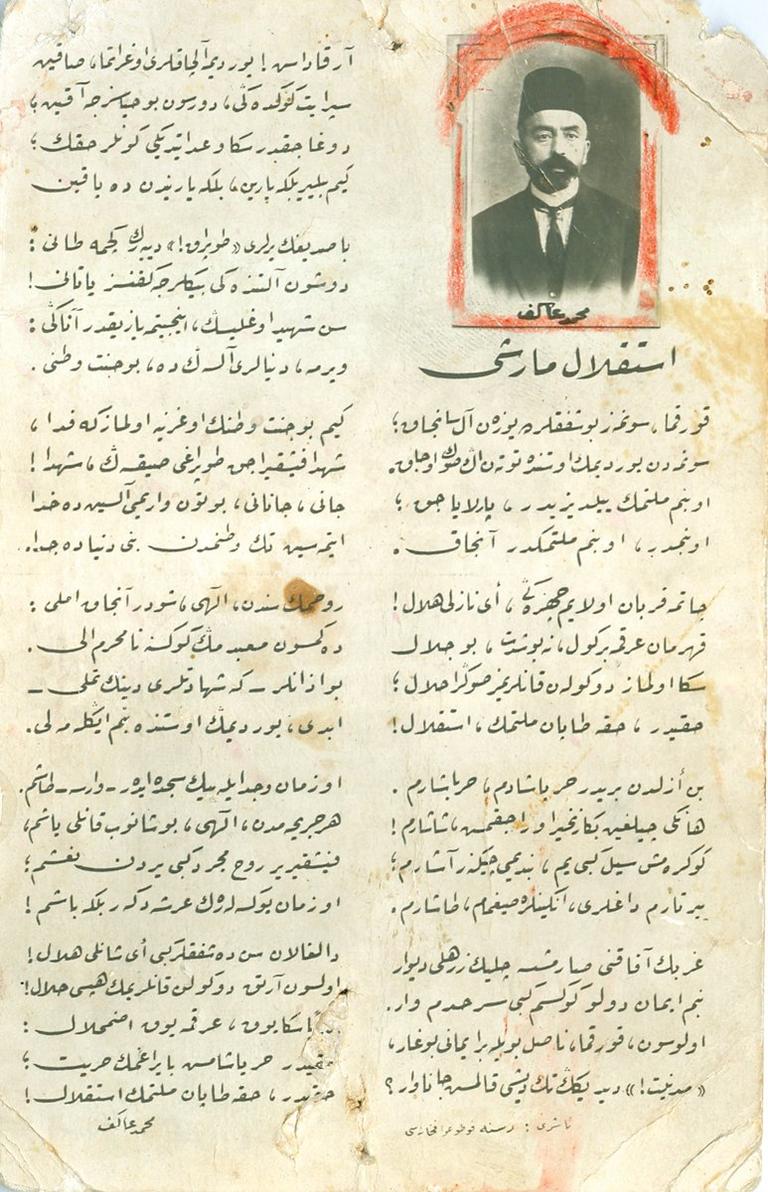 محمد عاكف
استقلال مارشى
قورقما، سونمز بو شفقلرده يوزن آل سانجاق؛
سونمدن يورديمك اوستنده توتن اڭ صوڭ اوجاق.
او بنم ملتمك ييلديزيدر ، پارلاياجق ؛
او بنمدر ، او بنم ملتمكدر آنجاق .
چاتمه قربان اولايم چهرەڭى ، أى نازلى هلال !
قهرمان عرقمه بر كول، نه بو شدت ، بو جلال
سكا اولماز دوكولن قانلريمز صوڭرا حلال ؛
حقيدر ، حقه طاپان ملتمك ، استقلال!
بن أزلدن بريدر حر ياشادم، حر ياشارم .
هانكى چيلغين بكا زنجير اوراجقمش، شاشارم !
كوكرەمش سيل كبى يم ، بنديمى چيكنر آشارم ؛
ييرتارم داغلرى، انكينلره صيغمام، طاشارم .
غربك آفاقنى صارمشسه چليك زرهلى ديوار
بنم ايمان دولو كوكسم كبى سرحدم وار.
اولوسون، قورقما، ناصل بويله بر ايمانى بوغار،
« مدنيت ! » ديديكك تك ديشى قالمش جاناوار ؟
ناشرى : رسنه فوطوغرافخانه‌سى
آرقاداش ! يورديمه آلچاقلرى اوغراتما، صاقين
سپر ايت كوكده‌ڭى، دورسون بو حياسزجه آقين ؛
دوغاجقدر سكا وعد ايتديكى كونلر حقك ؛
كيم بيلير بلكه يارين، بلكه ياريندن ده ياقين
باصديغك يرلرى «طوپراق!» دييەرك كچمه طانى :
دوشون آلتنده كى بيكلرجه كفنسز ياتانى !
سن شهيد اوغليسك، اينجيتمه يازيقدر آتاڭى :
ويرمه ، دنيالرى آلسەڭ ده، بو جنت وطنى .
كيم بو جنت وطنك اوغرينه اولماز كه فدا ،
شهدا فيشقيراجق طوپراغى صيقسەڭ ، شهدا !
جانى ، جانانى ، بوتون واريمى آلسين ده خدا
ايتمه سين تك وطنمدن بنى دنياده جدا.
روحمك سندن، الهى، شودر آنجاق املى :
دكمسون معبدمك كوكسنه نامحرم الى .
بو اذانلر ـ كه شهادتلرى دينك تملى ـ
ابدى ، يورديمك اوستنده بنم ايكله مه لى .
او زمان وجد ايله بيك سجده ايدر ـ وارسه ـ طاشم.
هر جريحه مدن، الهى، بوشانوب قانلى ياشم،
فيشقيرير روح مجرد كبى يردن نعشم ؛
او زمان يوكسه‌له‌رك عرشه دكر بلكه باشم !
دالغالان سن ده شفقلر كبى أى شانلى هلال !
اولسون آرتق دوكولن قانلريمك هپسى حلال!
سكا يوق ، عرقمه يوق اضمحلال :
حقيدر حر ياشامش بايراغمك حريت ؛
حقيدر ، حقه طاپان ملتمك استقلال !
محمد عاكف